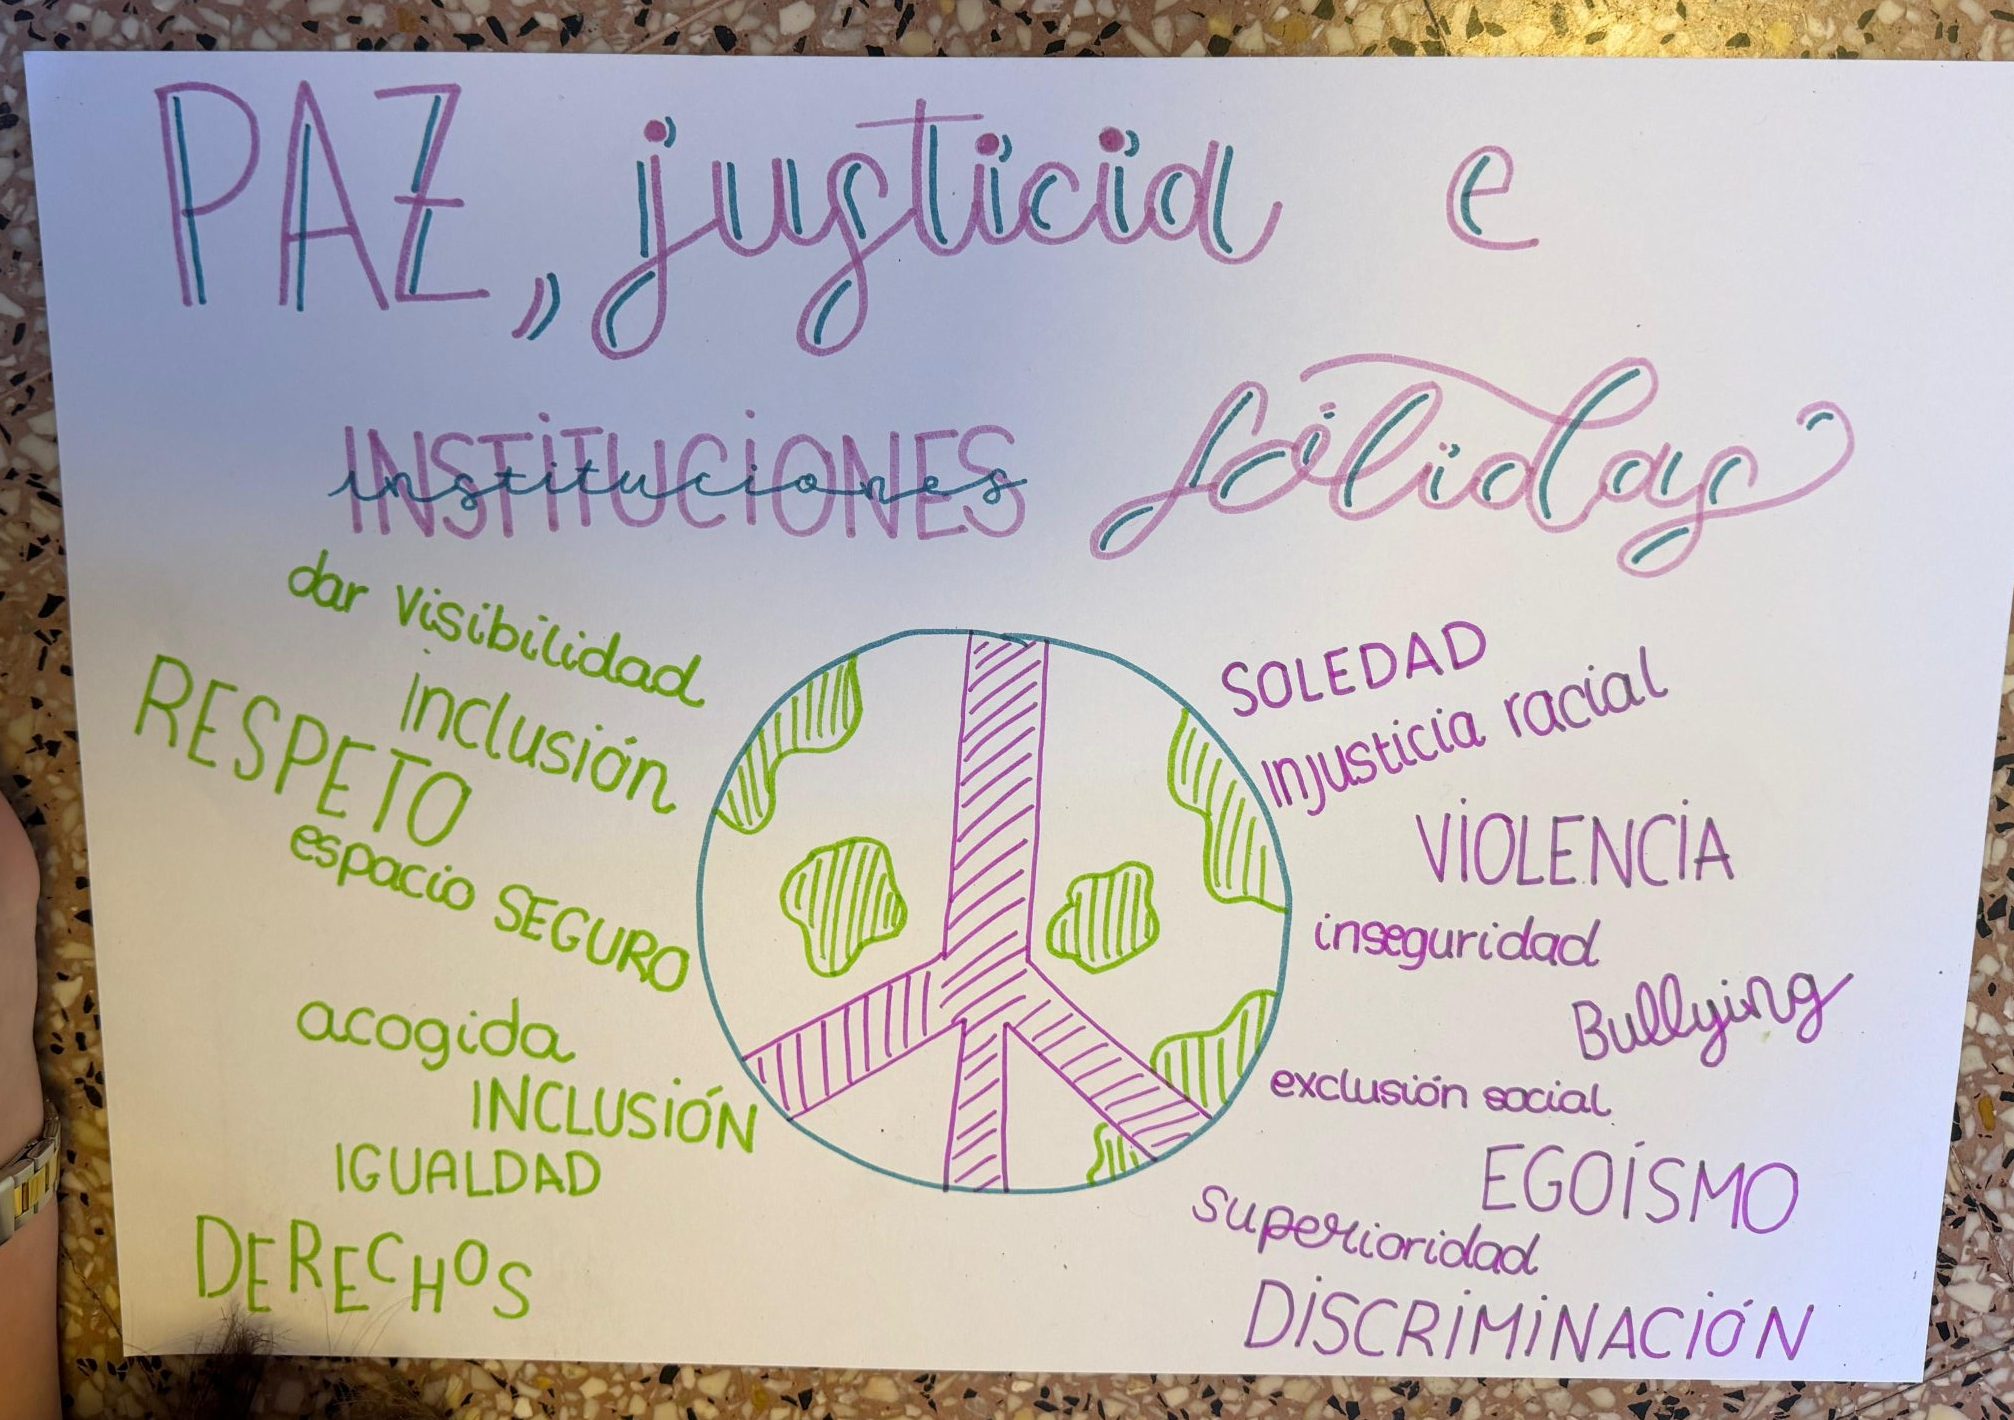 PAZ, justicia e
INSTITUCIONES sólidas
instituciones
dar visibilidad
inclusión
RESPETO
espacio SEGURO
acogida
INCLUSIÓN
IGUALDAD
DERECHOS
SOLEDAD
INJUSTICIA racial
VIOLENCIA
inseguridad
Bullying
exclusión social
EGOÍSMO
superioridad
DISCRIMINACIÓN